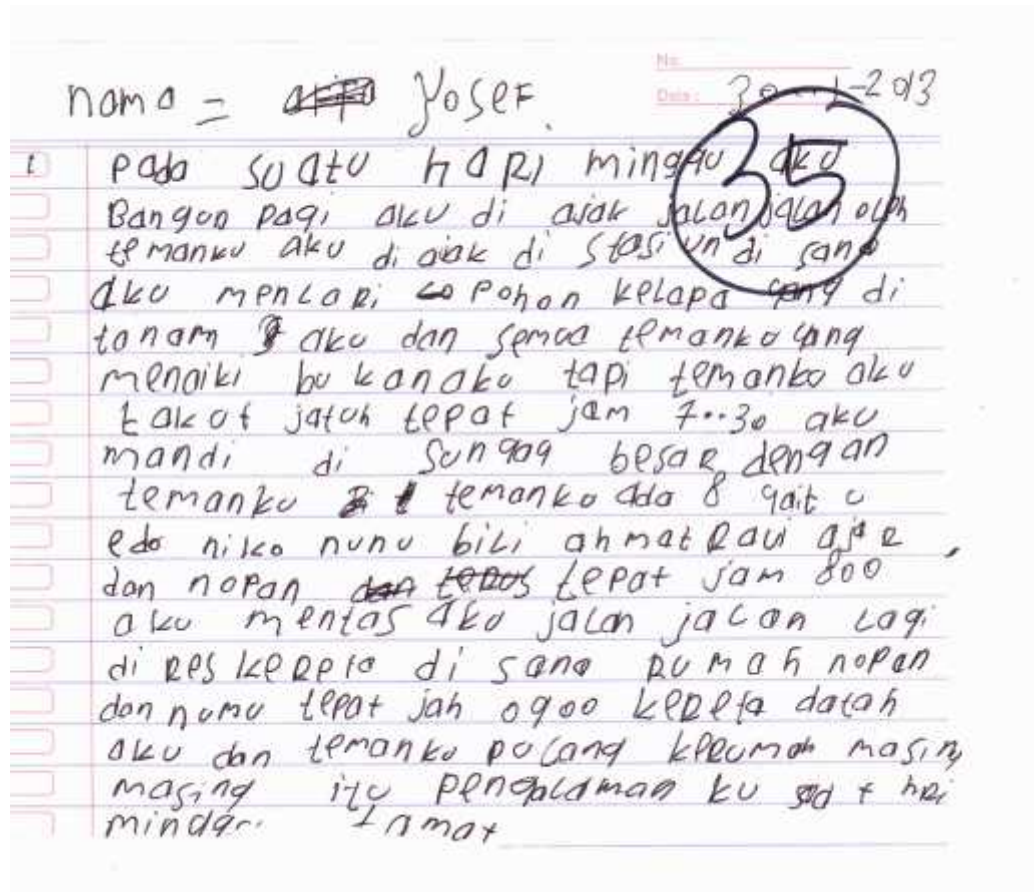 No.
nama = Yosef.
Date: 30-1-2013
35
1 pada suatu hari minggu aku
Bangun pagi aku di ajak jalan jalan oleh
temanku aku di ajak di stasiun di sana
aku mencari pohon kelapa yang di
tanam aku dan semua temanku yang
menaiki bukan aku tapi temanku aku
takut jatuh tepat jam 7..30 aku
mandi di sungaq besar dengan
temanku temanko ada 8 yait u
edo niko nunu bili ahmat Ravi ajar
dan nopan tepat jam 800
aku mentas aku jalan jalan lagi
di Res kereta di sana Rumah nopan
dan nunu tepat jah 0900 kereta datah
aku dan temanku pulang kerumah masing
masing itu pengalaman ku hri
tamat